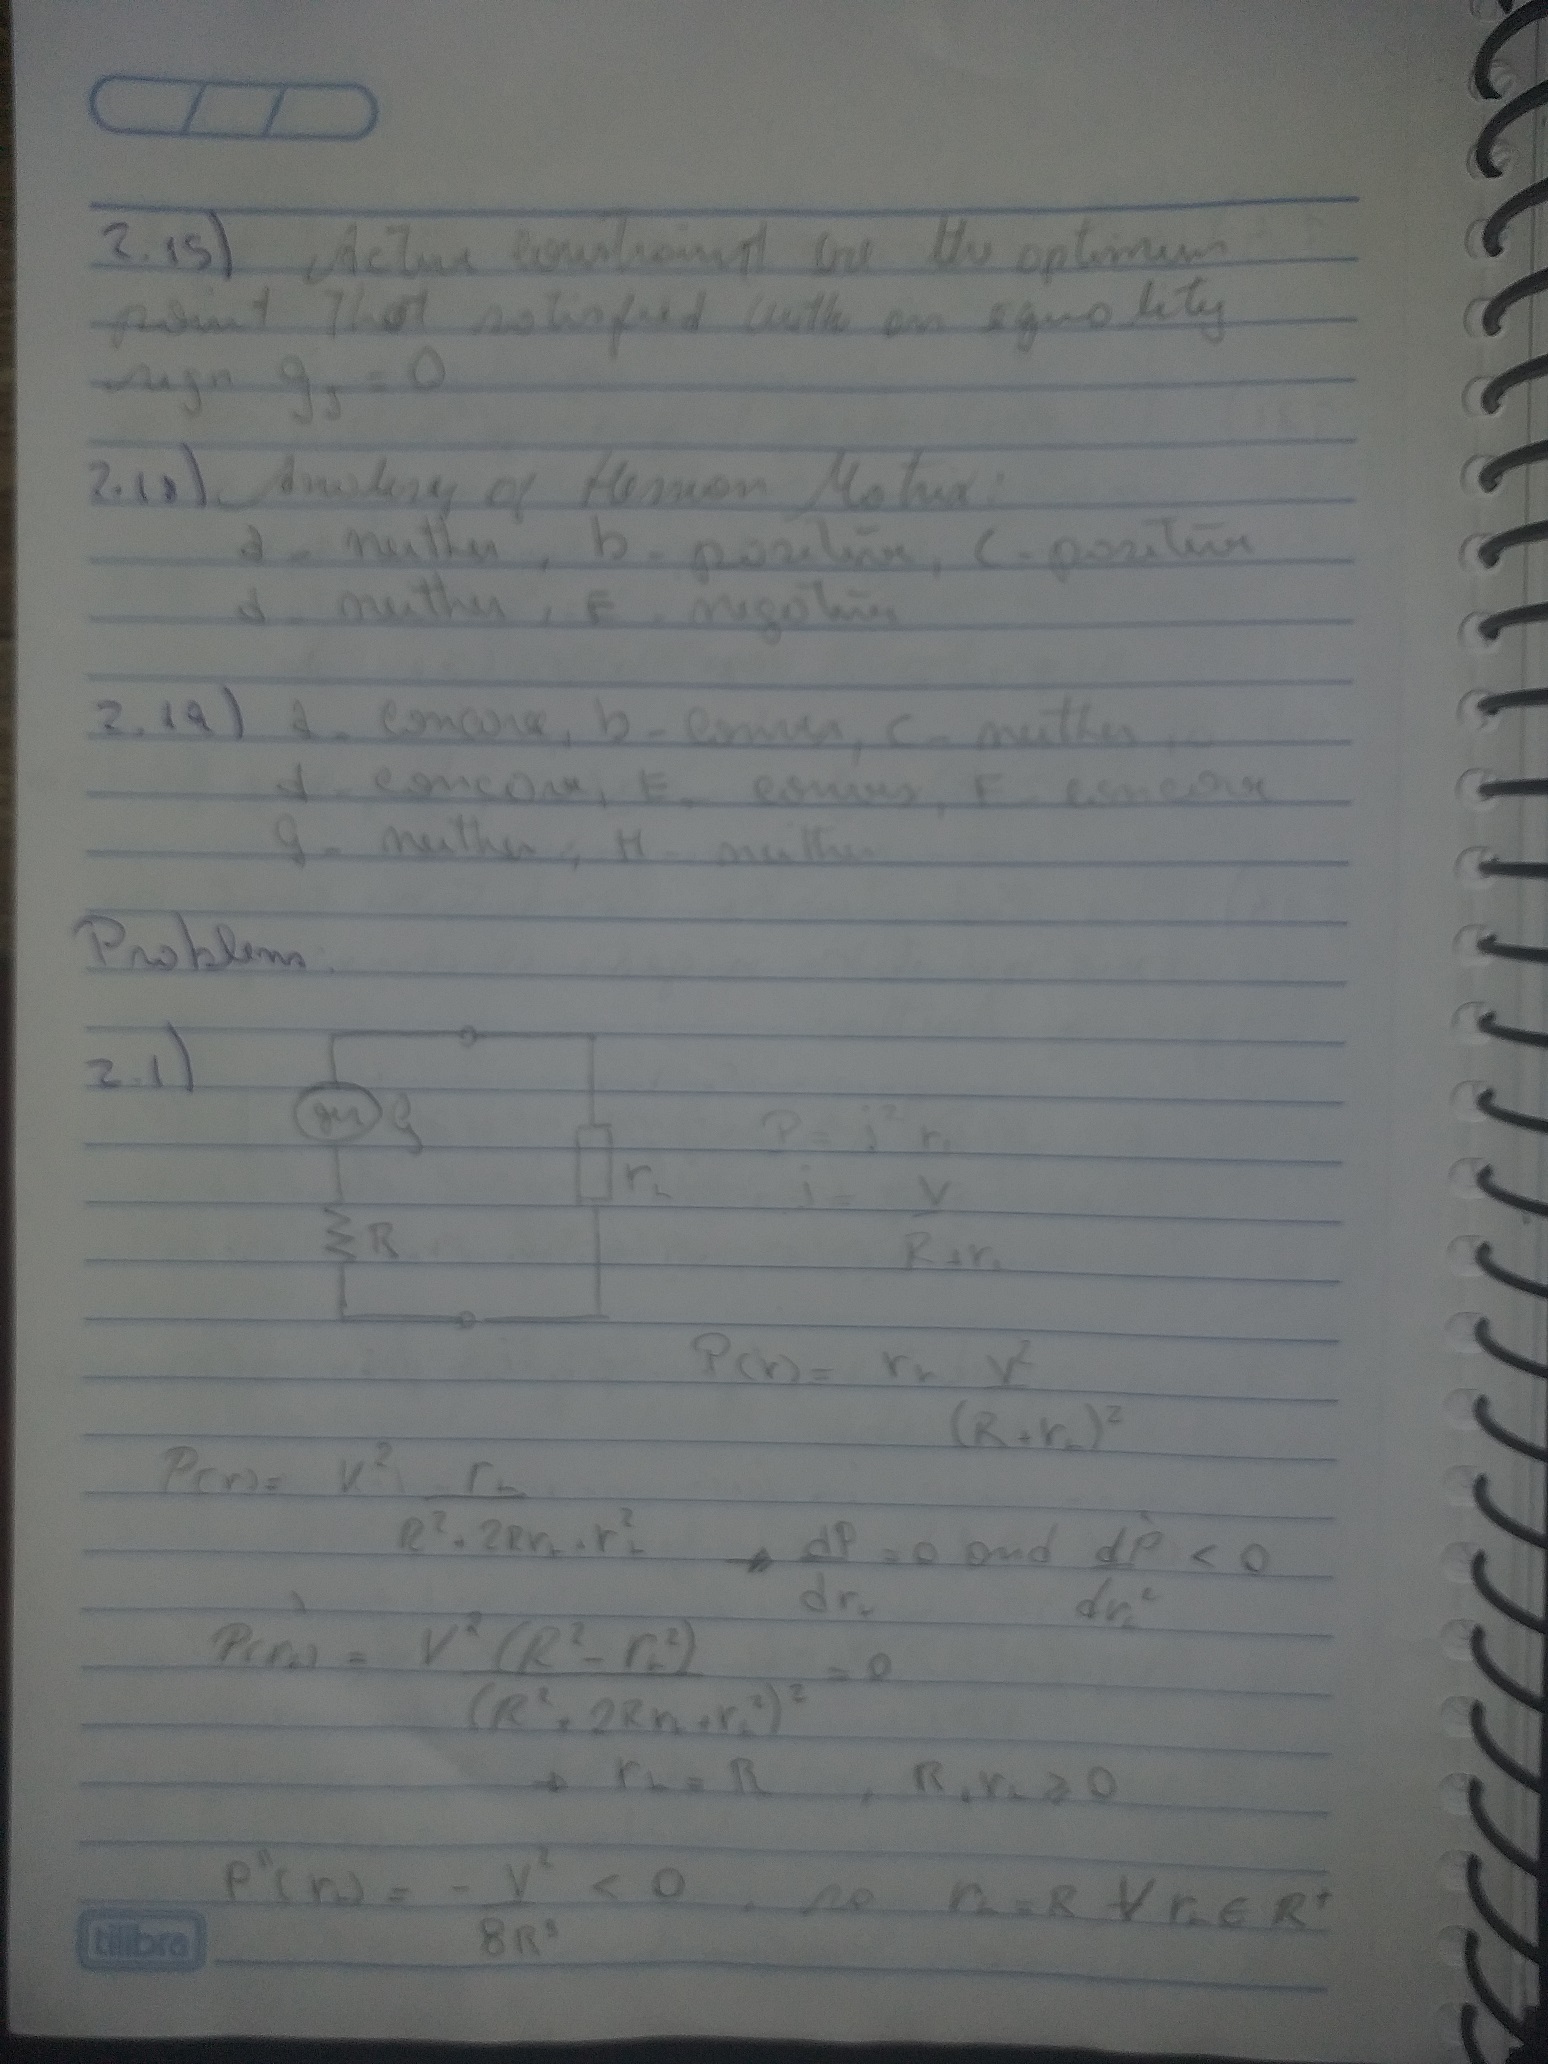 2.15) Active constraint are the optimum
point That satisfied with an equality
sign gj = 0
2.18). Analysis of Hessian Matrix:
a - neither, b - positive, c - positive
d - neither, E - negative
2.19) a - concave, b - convex, c - neither,
d - concave, E - convex, F - concave
g - neither, H - neither
Problems.
2.1)
G
P = i² rL
rL
i = V
R
R + rL
P(r) = rL V²
(R + rL)²
P(r) = V² rL
R² + 2RrL + rL²
→ dP = 0 and d²P < 0
drL drL²
P'(rL) = V² (R² - rL²) = 0
(R² + 2RrL + rL²)²
→ rL = R , R, rL ≥ 0
P''(rL) = - V² < 0 , so rL = R ∀ rL ∈ R⁺
8R³
tilibra